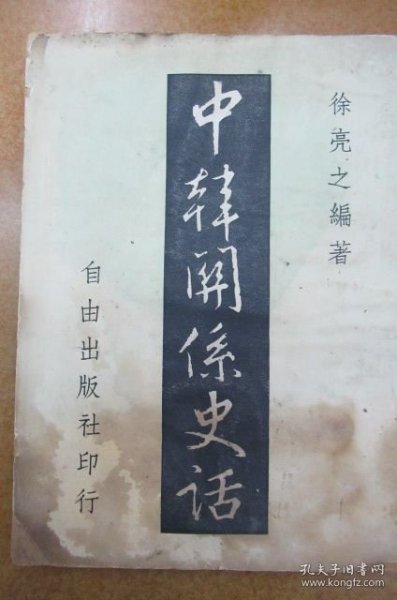 徐亮之編著
中韓關係史话
自由出版社印行
孔夫子旧书网
www.kongfz.com